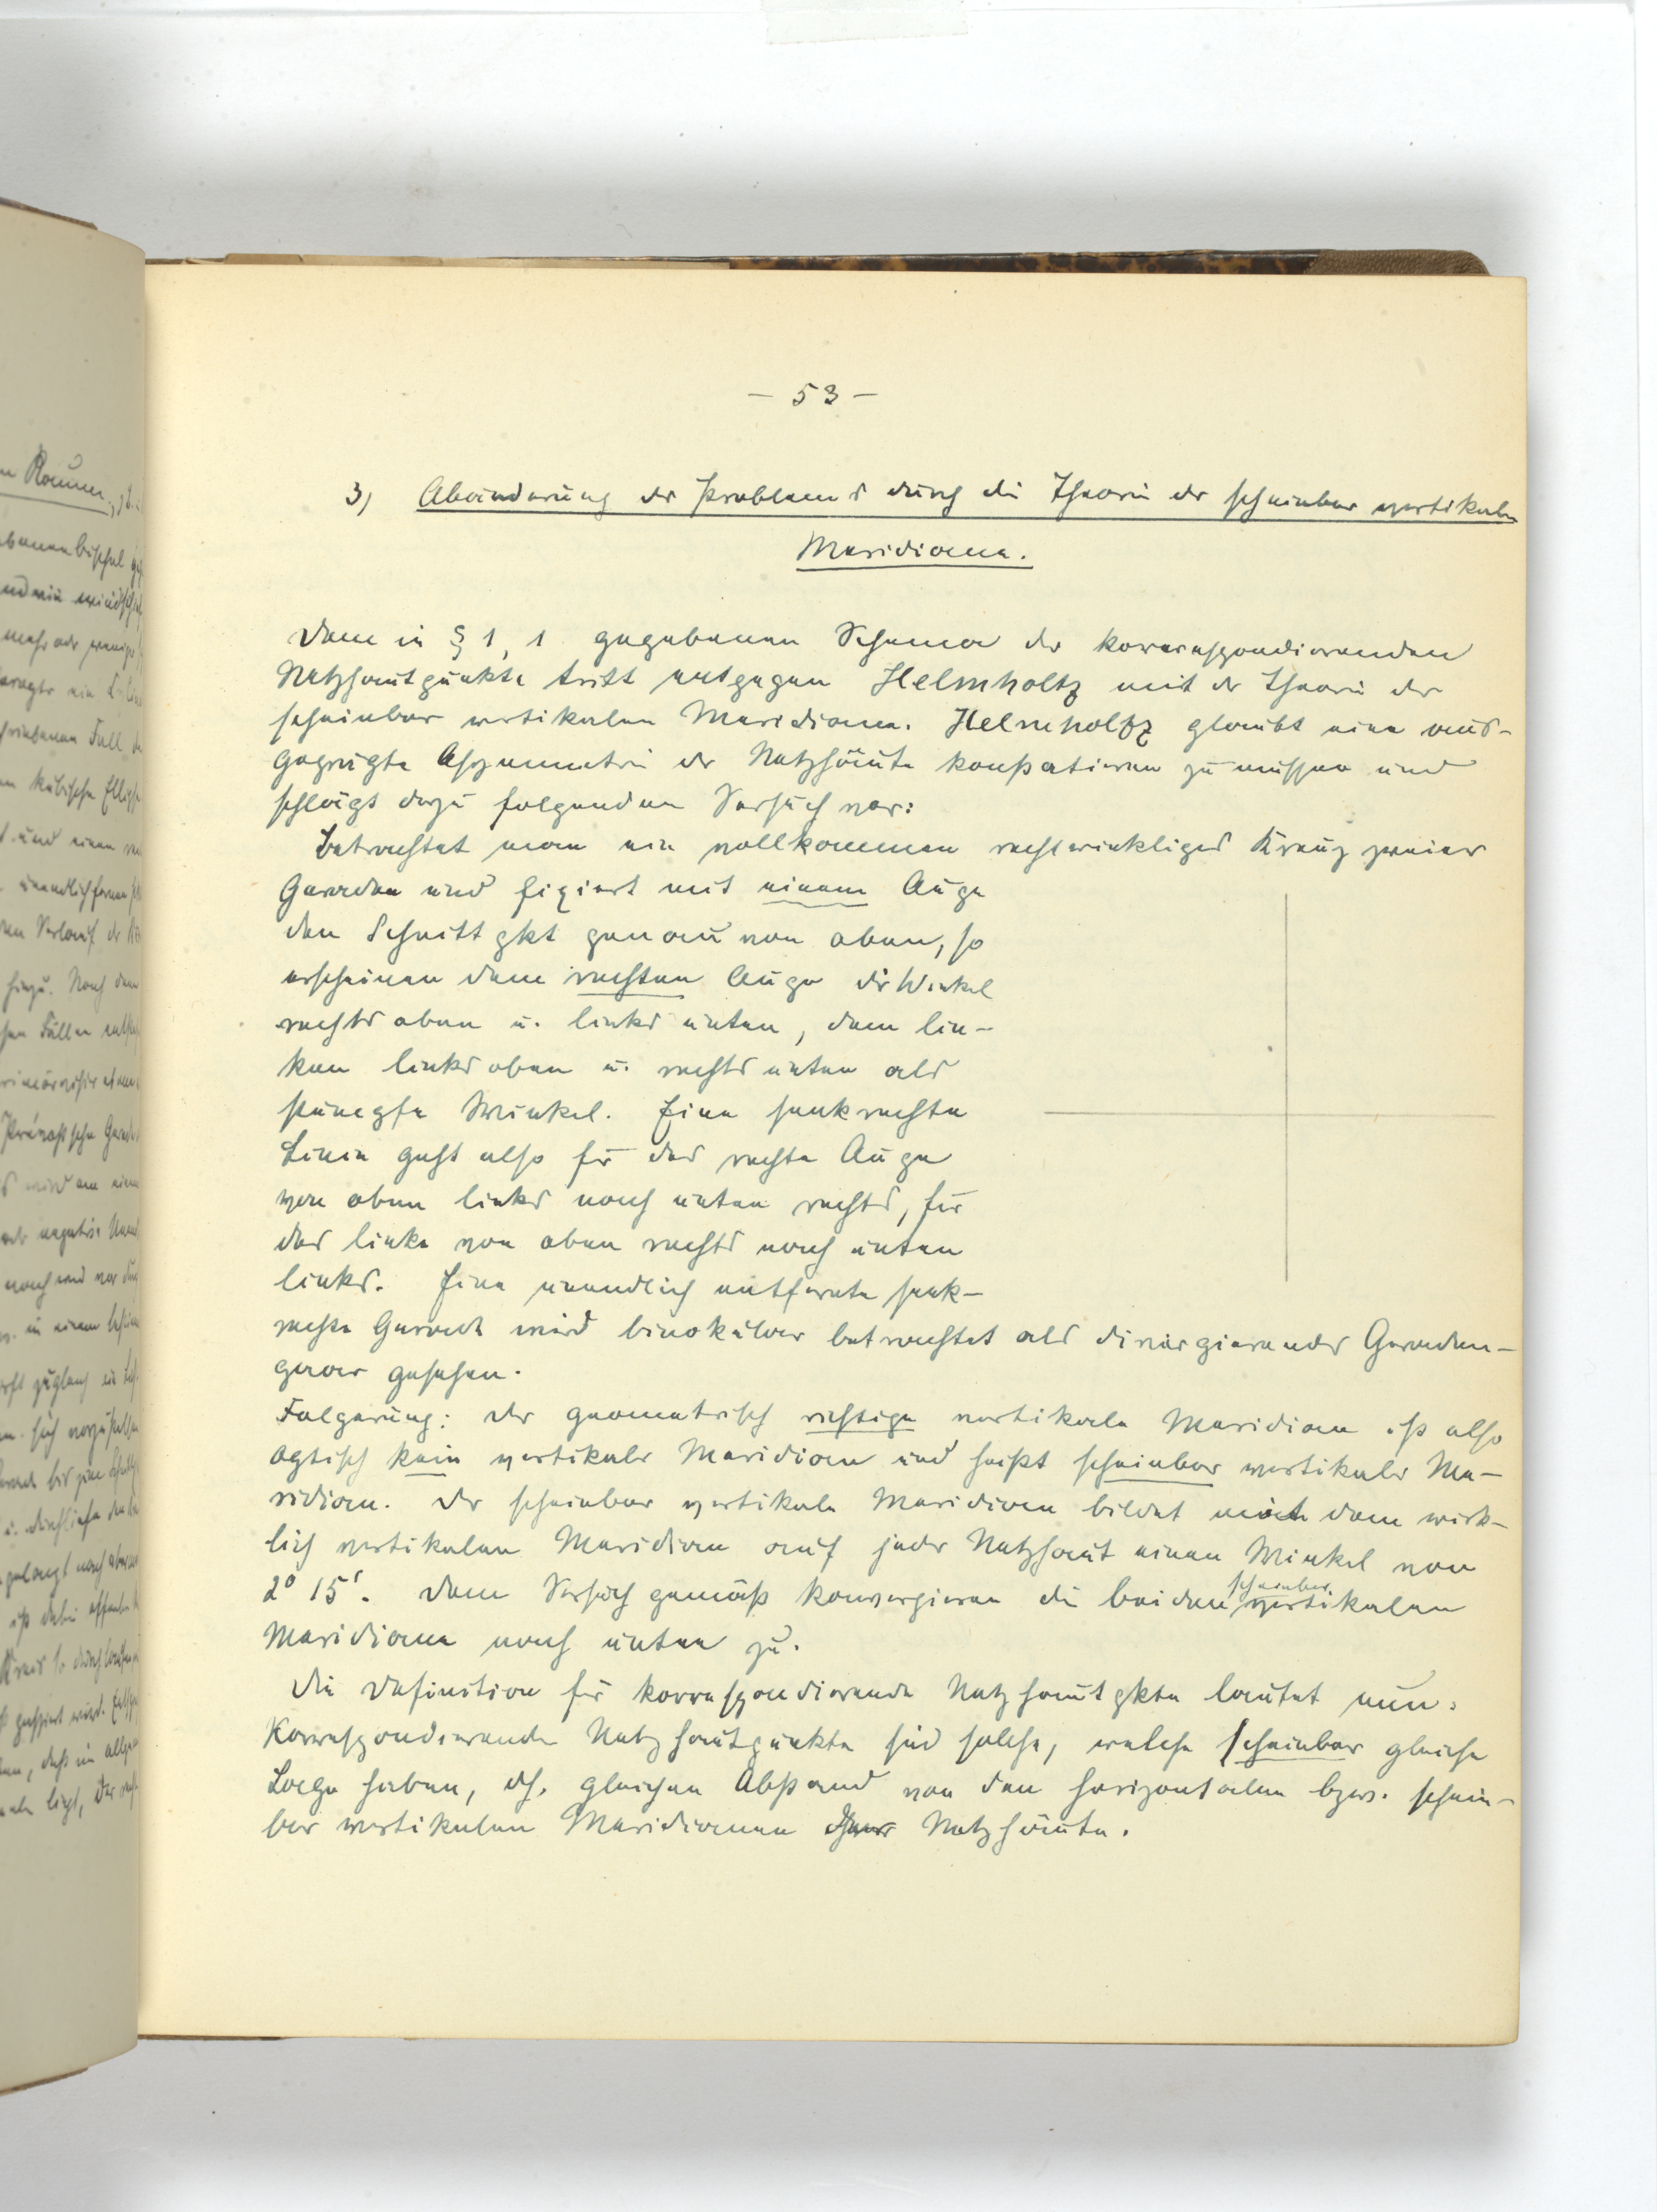 — 53 —
3) Abänderung des Problems durch die Theorie der scheinbar vertikalen
Meridiane.
Dem in § 1, 1 gegebenen Schema der korrespondierenden
Netzhautpunkte tritt entgegen Helmholtz mit der Theorie der
scheinbar vertikalen Meridiane. Helmholtz glaubt eine aus-
geprägte Asymmetrie der Netzhäute konstatieren zu müssen und
schlägt dazu folgenden Versuch vor:
Betrachtet man ein vollkommen rechtwinkliges Kreuz zweier
Geraden und fixiert mit einem Auge
den Schnittpkt genau von oben, so
erscheinen dem rechten Auge die Winkel
rechts oben u. links unten, dem lin-
ken links oben u. rechts unten als
stumpfe Winkel. Eine senkrechte
Linie geht also für das rechte Auge
von oben links nach unten rechts, für
das linke von oben rechts nach unten
links. Eine unendlich entfernte senk-
rechte Gerade wird binokular betrachtet als divergierendes Geraden-
paar gesehen.
Folgerung: Der geometrisch richtige vertikale Meridian ist also
optisch kein vertikaler Meridian und heißt scheinbar vertikaler Me-
ridian. Der scheinbar vertikale Meridian bildet mit dem wirk-
lich vertikalen Meridian auf jeder Netzhaut einen Winkel von
2° 15'. Dem Versuch gemäß konvergieren die beiden scheinbar vertikalen
Meridiane nach unten zu.
Die Definition für korrespondierende Netzhautpkte lautet nun:
Korrespondierende Netzhautpunkte sind solche, welche scheinbar gleiche
Lage haben, dh. gleichen Abstand von den horizontalen bzw. schein-
bar vertikalen Meridianen Netzhäute.